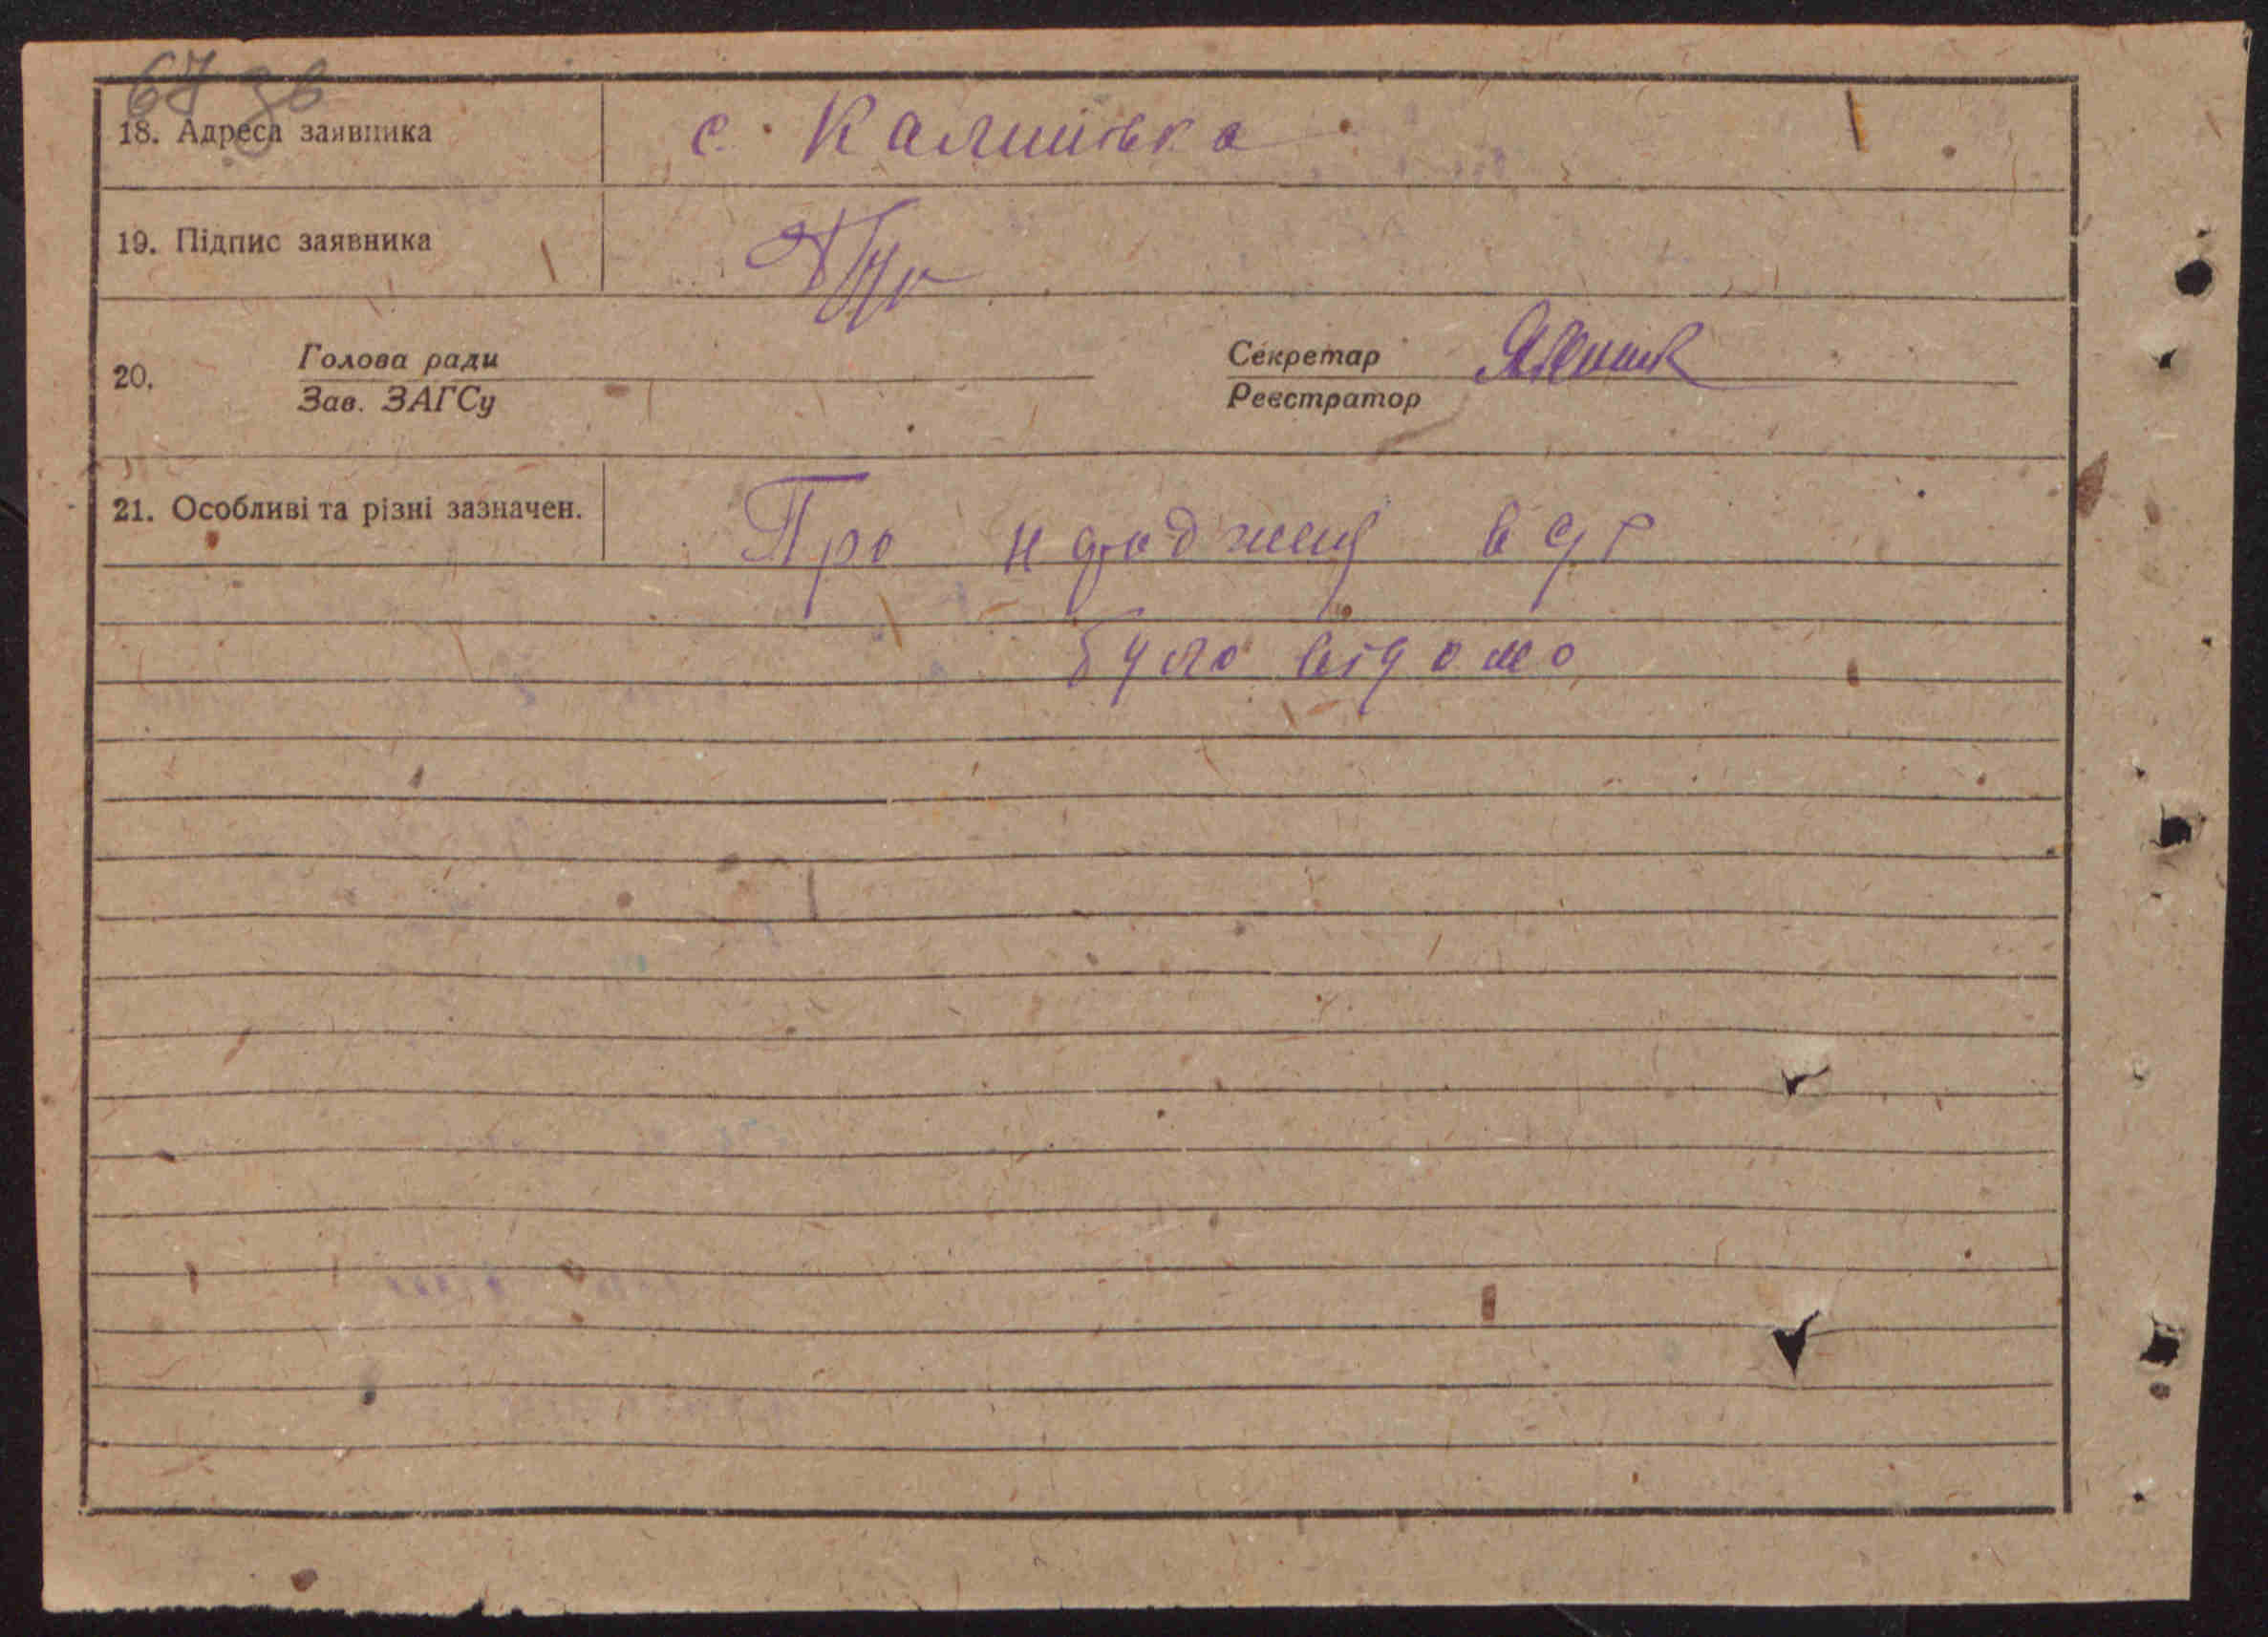 67 зв
18. Адреса заявника с. Калинівка
19. Підпис заявника
20. Голова ради Секретар
Зав. ЗАГСу Реєстратор
21. Особливі та різні зазначен. Про
було відомо